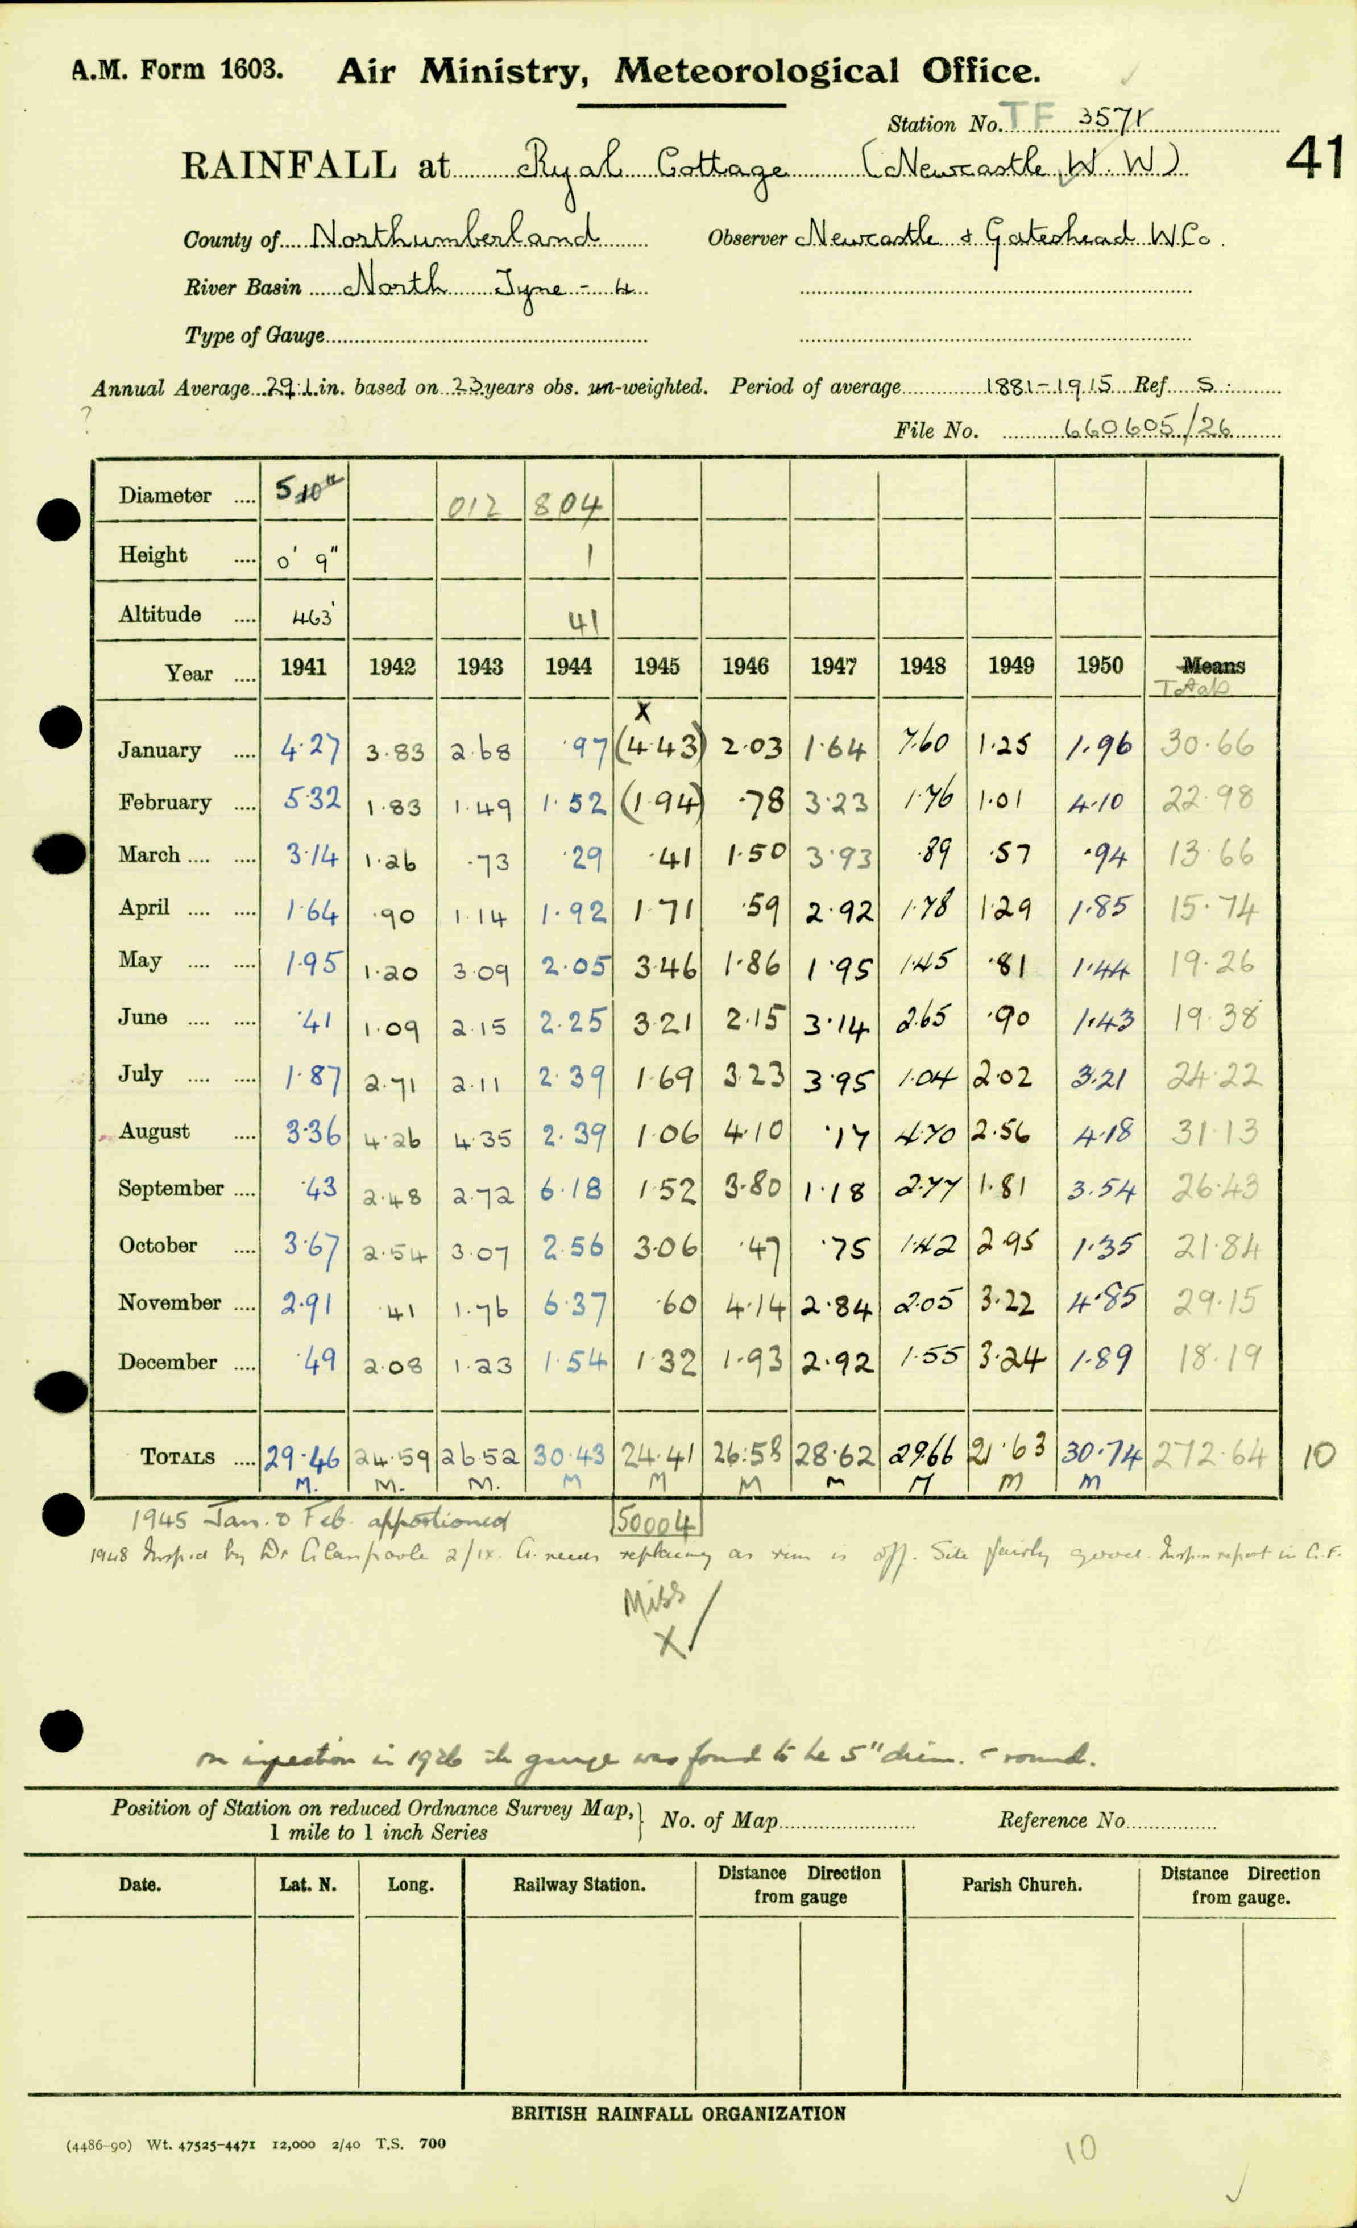 A.M. Form 1603. Air Ministry, Meteorological Office.
Station No. TF 3571
RAINFALL at Ryal Cottage (Newcastle W. W) 41
County of Northumberland Observer Newcastle & Gateshead W Co.
River Basin North Tyne - 4
Type of Gauge
Annual Average 29.1 in. based on 23 years obs. un-weighted. Period of average 1881-1915 Ref S.
?
File No. 660605/26
Diameter 5.10" 012 804
Height 0' 9" 1
Altitude 463' 41
Year 1941 1942 1943 1944 1945 1946 1947 1948 1949 1950 Means
Totals
X
January 4.27 3.83 2.68 .97 (4.43) 2.03 1.64 7.60 1.25 1.96 30.66
February 5.32 1.83 1.49 1.52 (1.94) .78 3.23 1.76 1.01 4.10 22.98
March 3.14 1.26 .73 .29 .41 1.50 3.93 .89 .57 .94 13.66
April 1.64 .90 1.14 1.92 1.71 .59 2.92 1.78 1.29 1.85 15.74
May 1.95 1.20 3.09 2.05 3.46 1.86 1.95 1.45 .81 1.44 19.26
June .41 1.09 2.15 2.25 3.21 2.15 3.14 2.65 .90 1.43 19.38
July 1.87 2.71 2.11 2.39 1.69 3.23 3.95 1.04 2.02 3.21 24.22
August 3.36 4.26 4.35 2.39 1.06 4.10 .17 4.70 2.56 4.18 31.13
September .43 2.48 2.72 6.18 1.52 3.80 1.18 2.77 1.81 3.54 26.43
October 3.67 2.54 3.07 2.56 3.06 .47 .75 1.42 2.95 1.35 21.84
November 2.91 .41 1.76 6.37 .60 4.14 2.84 2.05 3.22 4.85 29.15
December .49 2.08 1.23 1.54 1.32 1.93 2.92 1.55 3.24 1.89 18.19
TOTALS 29.46 24.59 26.52 30.43 24.41 26.58 28.62 29.66 21.63 30.74 272.64 10
M. M. M. M M M M M M M
1945 Jan. & Feb. apportioned 50004
1948 Insp.d by Dr Glasspoole 2/ix. G. needs replacing as rim is off. Site fairly good. Inspn report in C.F.
Miss
X
On inspection in 1926 the gauge was found to be 5" diam. & round.
Position of Station on reduced Ordnance Survey Map, No. of Map Reference No.
1 mile to 1 inch Series
Date. Lat. N. Long. Railway Station. Distance Direction from gauge Parish Church. Distance Direction from gauge.
BRITISH RAINFALL ORGANIZATION
(4486-90) Wt. 47525-4471 12,000 2/40 T.S. 700
10